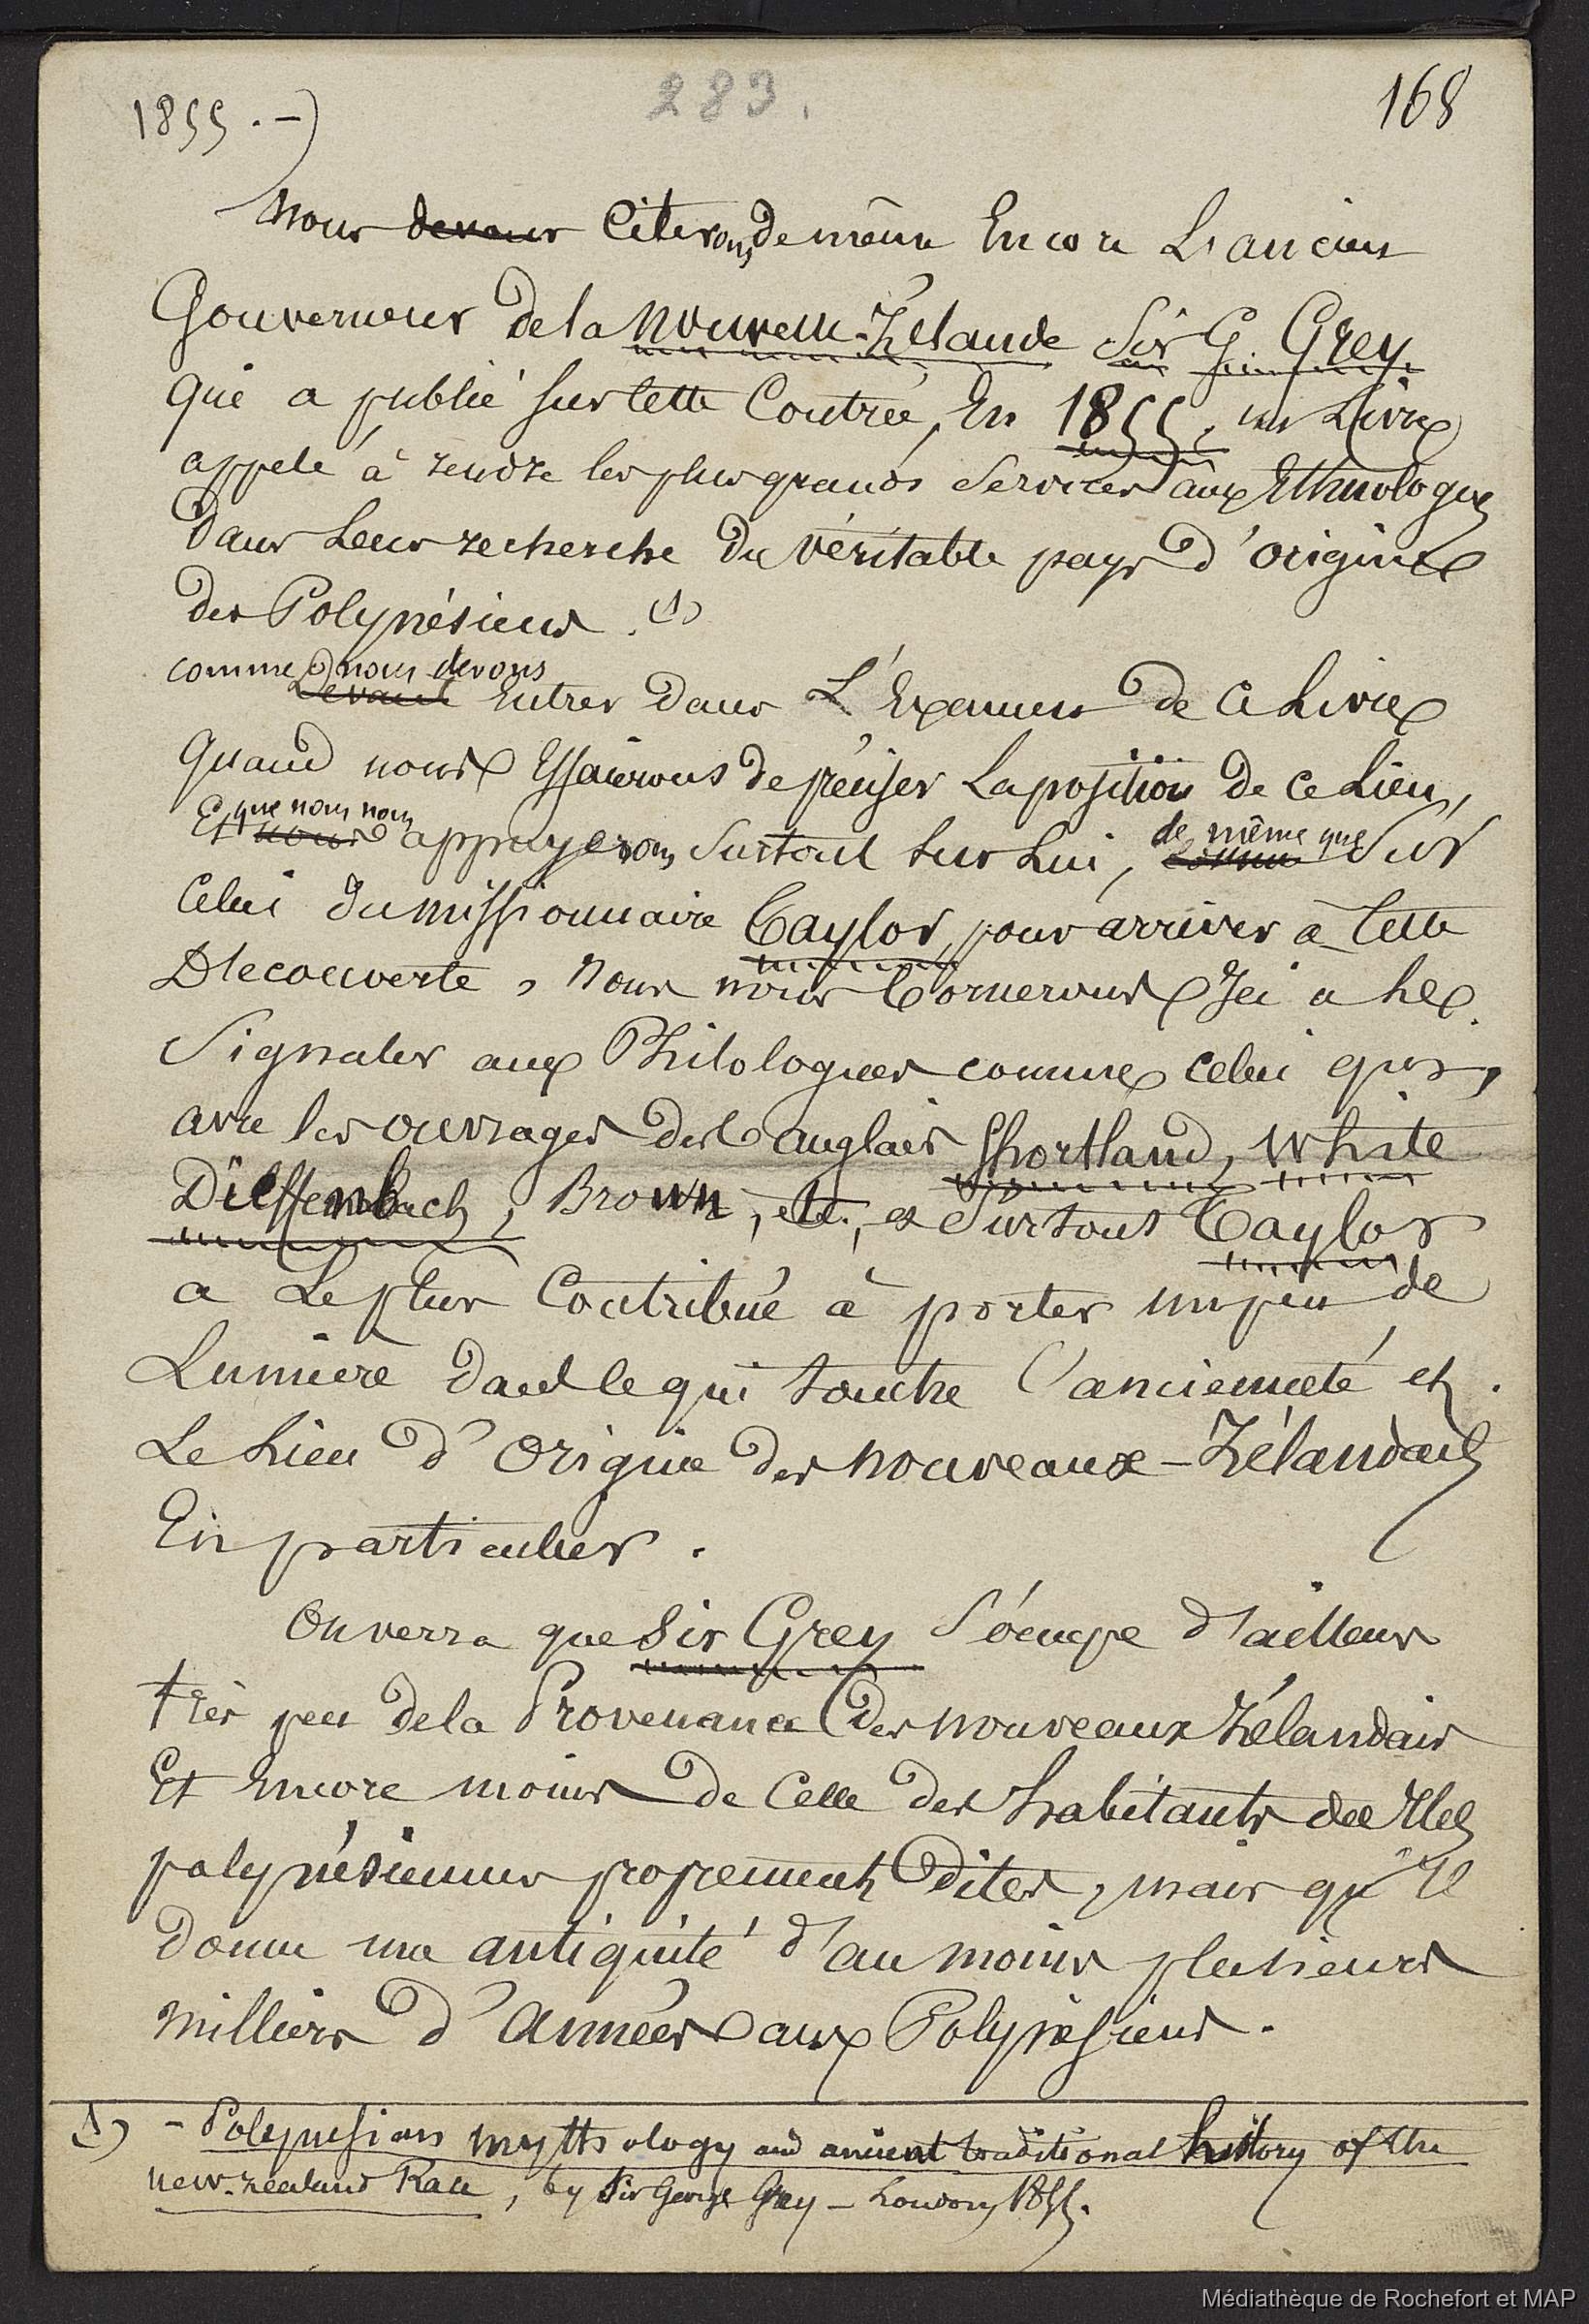 283.
168
1855. -)
Nous devons Citerons de même Encore L'ancien
Gouverneur de la Nouvelle-Zélande Sir G. Grey
qui a publié sur Cette Contrée, En 1855, un Livre
appelé à rendre les plus grands Services aux Ethnologues
Dans Leur recherche du véritable pays d'origine
des Polynésiens. (1)
comme nous devons
Devant Entrer dans L'Examen de Ce Livre
Quand nous Essaierons de préciser La position de ce Lieu,
que nous nous de même que
Et nous appuyerons Surtout sur Lui, comme Sur
Celui du missionnaire Taylor, pour arriver à Cette
Découverte, Nous nous bornerons Ici a Le
Signaler aux Philologues comme celui qui,
avec les ouvrages des anglais Shortland, White
Dieffenbach, Brown, etc., et Surtout Taylor
a Le plus Contribué à porter un peu de
Lumière dans ce qui touche l'ancienneté et
Le Lieu d'Origine des nouveaux-Zélandais
En particulier.
On verra que Sir Grey S'occupe d'ailleurs
très peu de la Provenance des nouveaux Zélandais
Et Encore moins de Celle des habitants des Iles
polynésiennes proprement dites, mais qu'Il
donne une antiquité d'au moins plusieurs
milliers d'Années aux Polynésiens.
(1) - Polynesian mythology and ancient traditional history of the
New-Zealand Race, by Sir George Grey - London, 1855.
Médiathèque de Rochefort et MAP